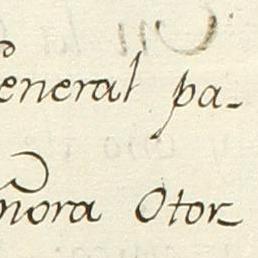 eneral pa-
ñora Otor-